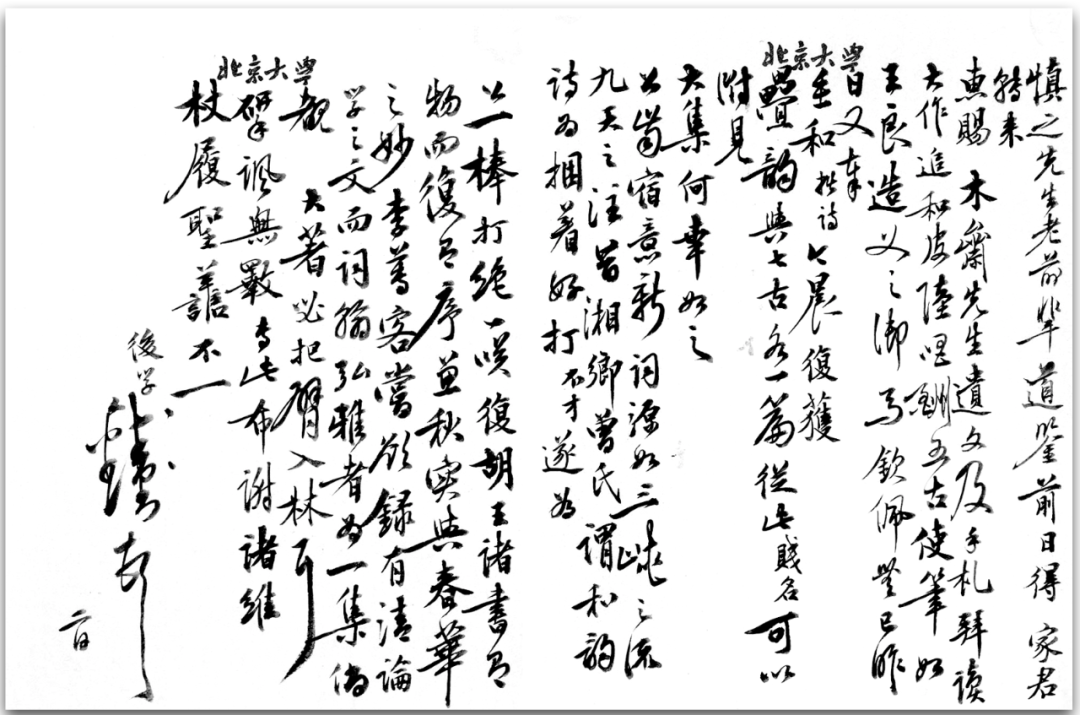 慎之先生老前輩道鑒前日得 家君
轉來
惠賜 木齋先生遺文及手札拜讀
大作追和皮陸唱酬五古使筆如
王良造父之御馬欽佩無已昨
日又奉
手和拙詩今晨復獲
疊韻與七古各一篇從此賤名可以
附見
大集何幸如之
公
宿意新詞源如三峽之流
九天之注昔湘鄉曾氏謂和韻
詩為捆着好打不才遂為
公一棒打絕嘆復胡王諸書有
物而復有序兼秋實與春華
之妙李蒓客嘗欲錄有清論
學之文而詞翰弘雅者為一集倘
觀
大著必把臂入林耳
研諷無斁專此布謝諸維
杖履聖譫不一
後學
錢鍾書
一日
北京大學
北京大學